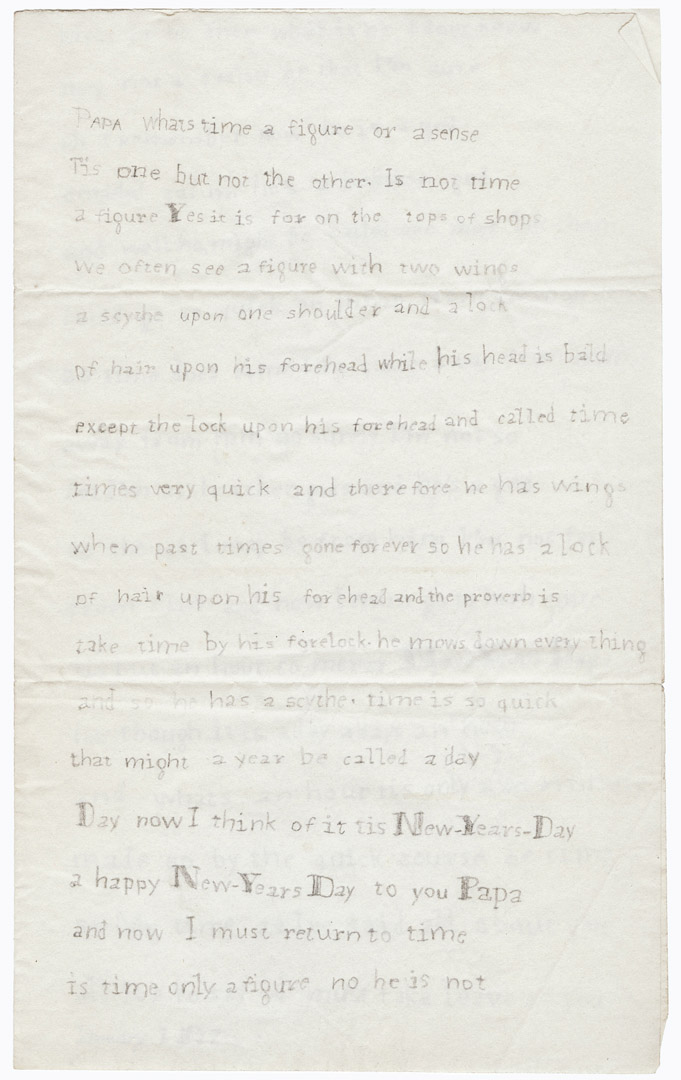 PAPA whats time a figure or a sense
Tis one but not the other. Is not time
a figure Yes it is for on the tops of shops
We often see a figure with two wings
a scythe upon one shoulder and a lock
of hair upon his forehead while his head is bald
except the lock upon his forehead and called time
times very quick and therefore he has wings
when past times gone forever so he has a lock
of hair upon his forehead and the proverb is
take time by his forelock. he mows down every thing
and so he has a scythe. time is so quick
that might a year be called a day
Day now I think of it tis New-Years-Day
a happy New-Years Day to you Papa
and now I must return to time
is time only a figure no he is not